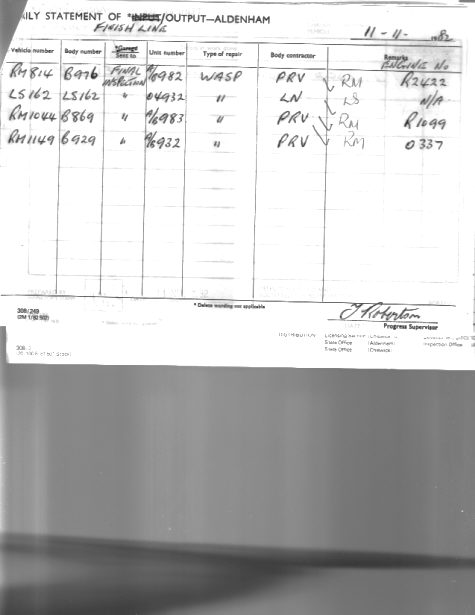 ILY STATEMENT OF *INPUT/OUTPUT—ALDENHAM
FINISH LINE 11-11- 1982
Vehicle number Body number *Garage Sent to Unit number Type of repair Body contractor Remarks
ENGINE No
RM814 B976 FINAL INSPECTION A/6982 WASP PRV RM R2422
LS162 LS162 " 04932 " LN LS N/A
RM1044 B869 " A/6983 " PRV RM R1099
RM1149 B929 " A/6932 " PRV RM 0337
* Delete wording not applicable
308/249
J Robertson
Progress Supervisor
DISTRIBUTION
State Office (Aldenham)
State Office (Chiswick)
Inspection Office